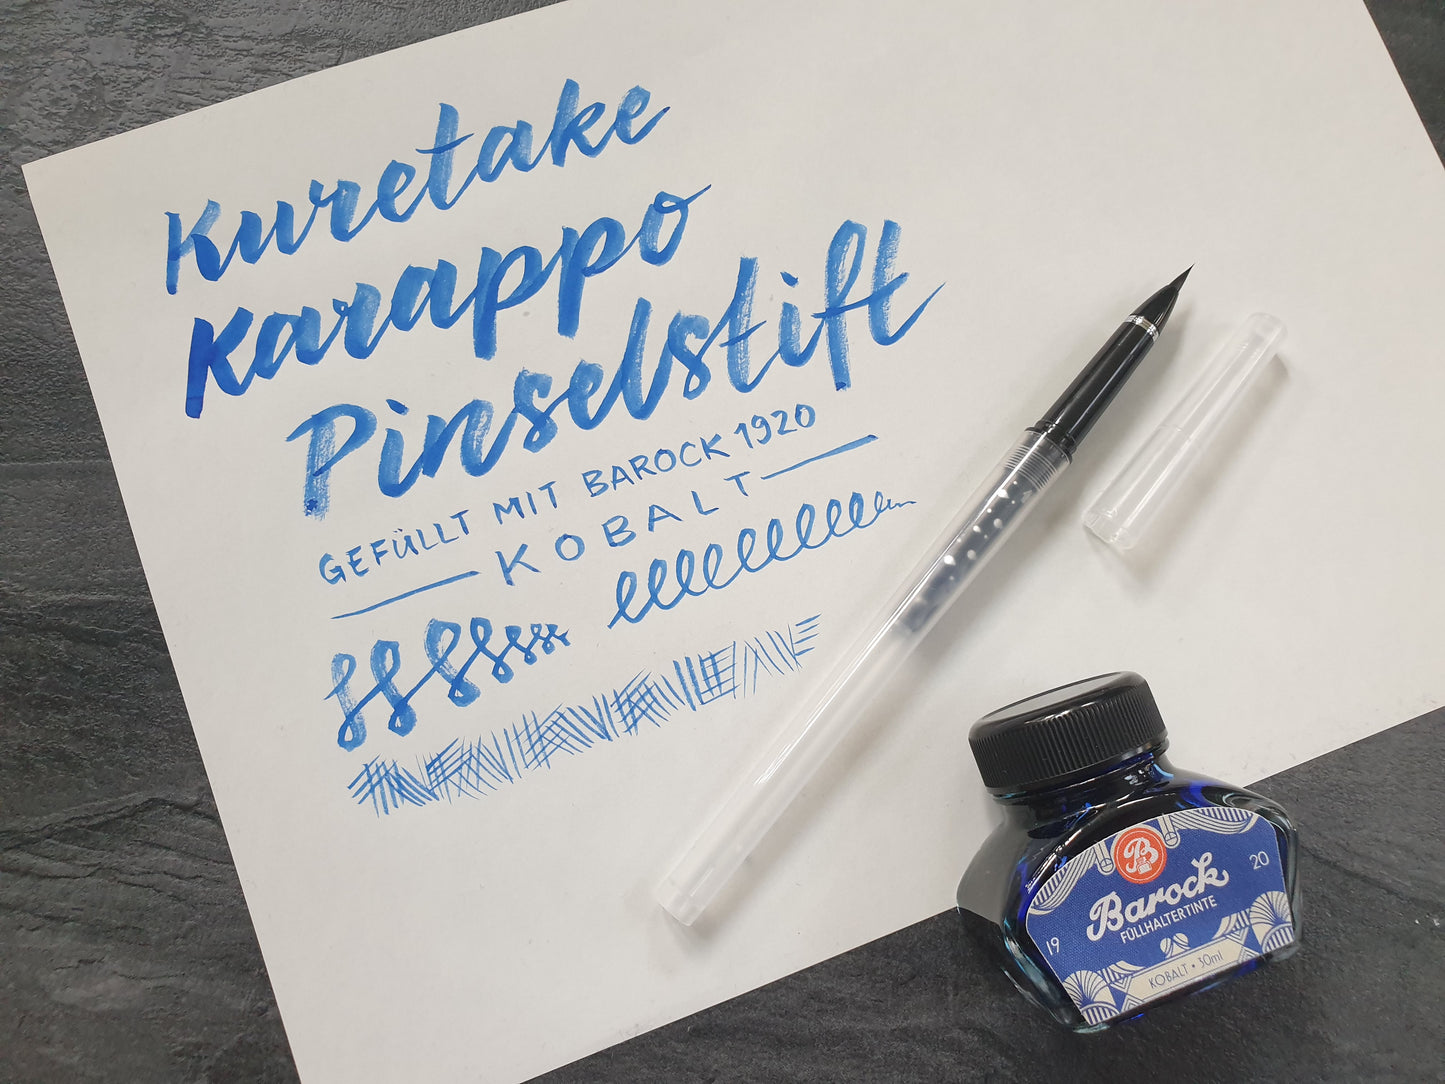 Kuretake
Karappo
Pinselstift
GEFÜLLT MIT BAROCK 1920
KOBALT
B
19 20
Barock
FÜLLHALTERTINTE
KOBALT • 30ml